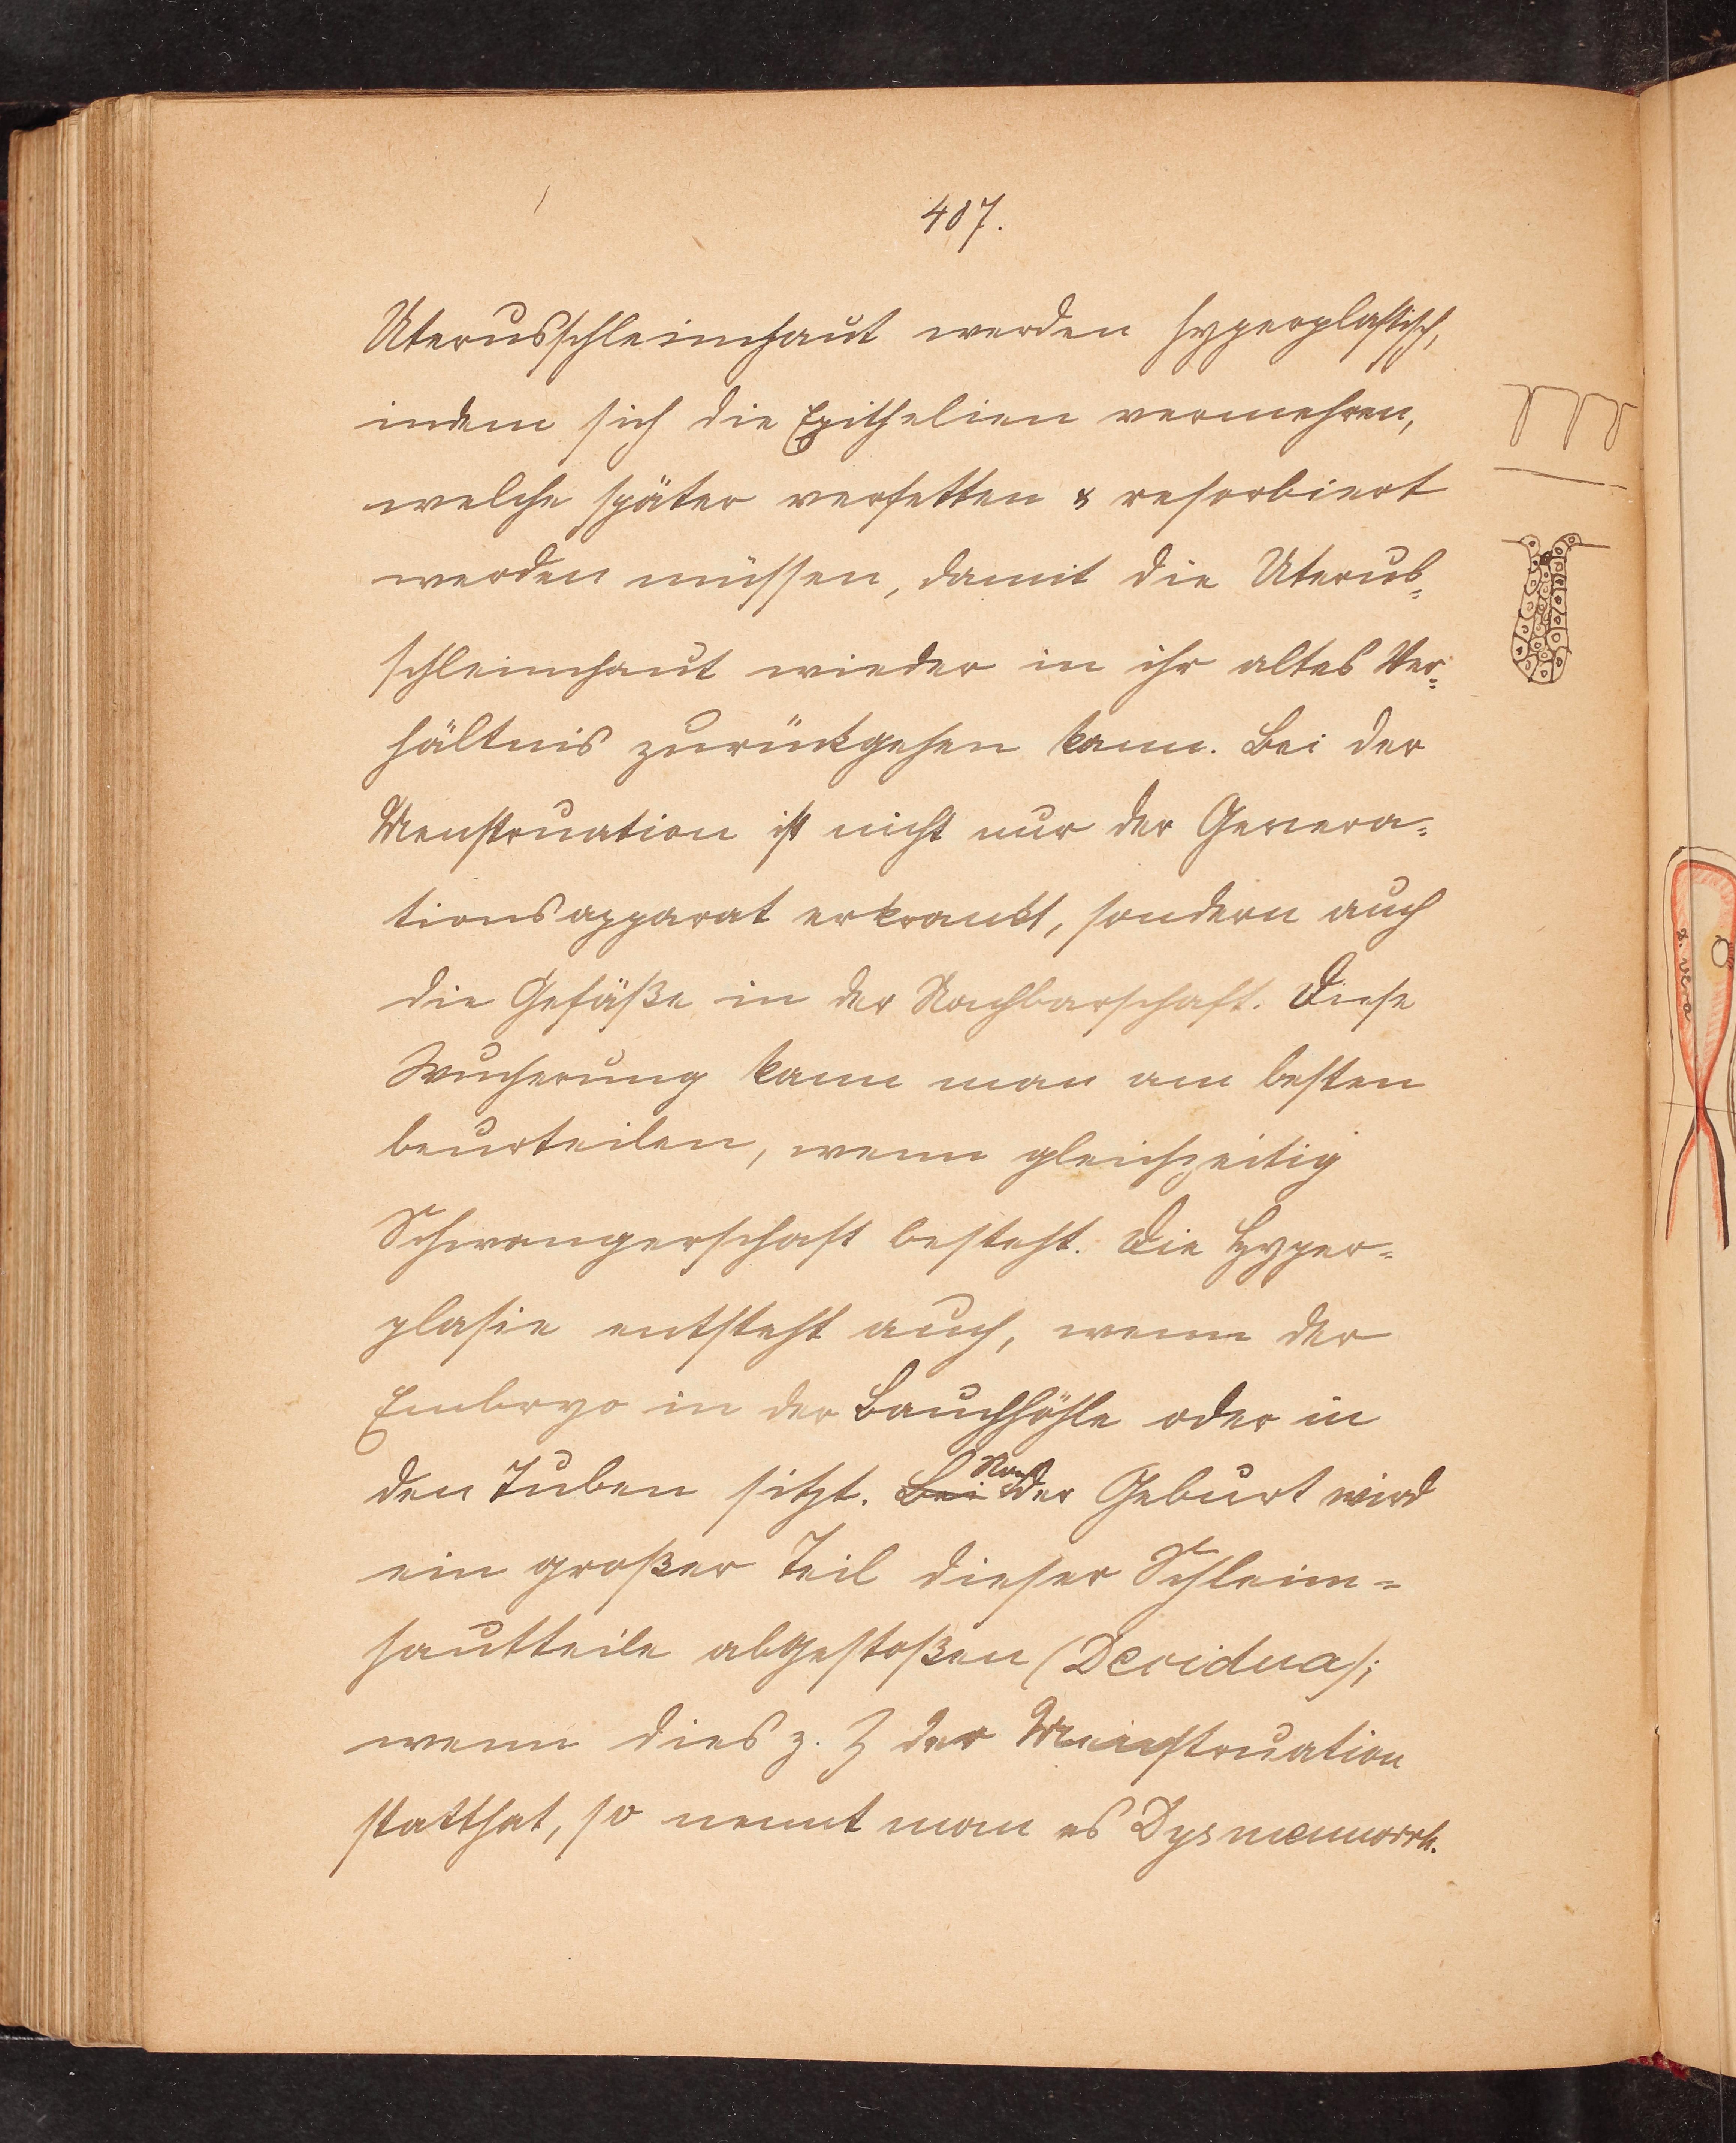 407.
Uterusschleimhaut werden hyperplastisch,
indem sich die Epithelien vermehren,
welche später verfetten & resorbiert
werden müssen, damit die Uterus=
schleimhaut wieder in ihr altes Ver=
hältnis zurückgehen kann. Bei der
Menstruation ist nicht nur der Genera=
tionsapparat erkrankt, sondern auch
die Gefäße in der Nachbarschaft. Diese
Wucherung kann man am besten
beurteilen, wenn gleichzeitig
Schwangerschaft besteht. Die Hyper=
plasie entsteht auch, wenn der
Embryo in der Bauchhöhle oder in
den Tuben sitzt. Bei Nach der Geburt wird
ein großer Teil dieser Schleim=
hautteile abgestoßen (Decidua);
wenn dies z. Z der Menstruation
statthat, so nennt man es Dysmennorrh.
d. vera